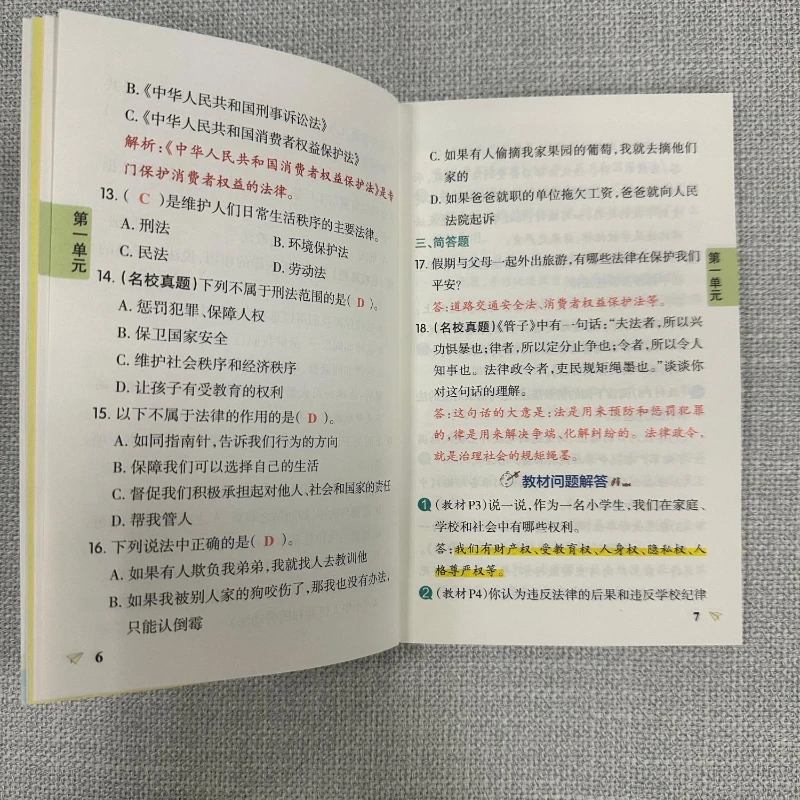 B.《中华人民共和国刑事诉讼法》
C.《中华人民共和国消费者权益保护法》
解析:《中华人民共和国消费者权益保护法》是专
门保护消费者权益的法律。
13.( C )是维护人们日常生活秩序的主要法律。
A. 刑法 B. 环境保护法
C. 民法 D. 劳动法
14.(名校真题)下列不属于刑法范围的是( D )。
A. 惩罚犯罪、保障人权
B. 保卫国家安全
C. 维护社会秩序和经济秩序
D. 让孩子有受教育的权利
15. 以下不属于法律的作用的是( D )。
A. 如同指南针,告诉我们行为的方向
B. 保障我们可以选择自己的生活
C. 督促我们积极承担起对他人、社会和国家的责任
D. 帮我管人
16. 下列说法中正确的是( D )。
A. 如果有人欺负我弟弟,我就找人去教训他
B. 如果我被别人家的狗咬伤了,那我也没有办法,
只能认倒霉
第一单元
6
C. 如果有人偷摘我家果园的葡萄,我就去摘他们
家的
D. 如果爸爸就职的单位拖欠工资,爸爸就向人民
法院起诉
三、简答题
17. 假期与父母一起外出旅游,有哪些法律在保护我们
平安?
答:道路交通安全法、消费者权益保护法等。
18.(名校真题)《管子》中有一句话:“夫法者,所以兴
功惧暴也;律者,所以定分止争也;令者,所以令人
知事也。法律政令者,吏民规矩绳墨也。”谈谈你
对这句话的理解。
答:这句话的大意是:法是用来预防和惩罚犯罪
的,律是用来解决争端、化解纠纷的。法律政令,
就是治理社会的规矩绳墨。
教材问题解答
1 (教材P3)说一说,作为一名小学生,我们在家庭、
学校和社会中有哪些权利。
答:我们有财产权、受教育权、人身权、隐私权、人
格尊严权等。
2 (教材P4)你认为违反法律的后果和违反学校纪律
第一单元
7